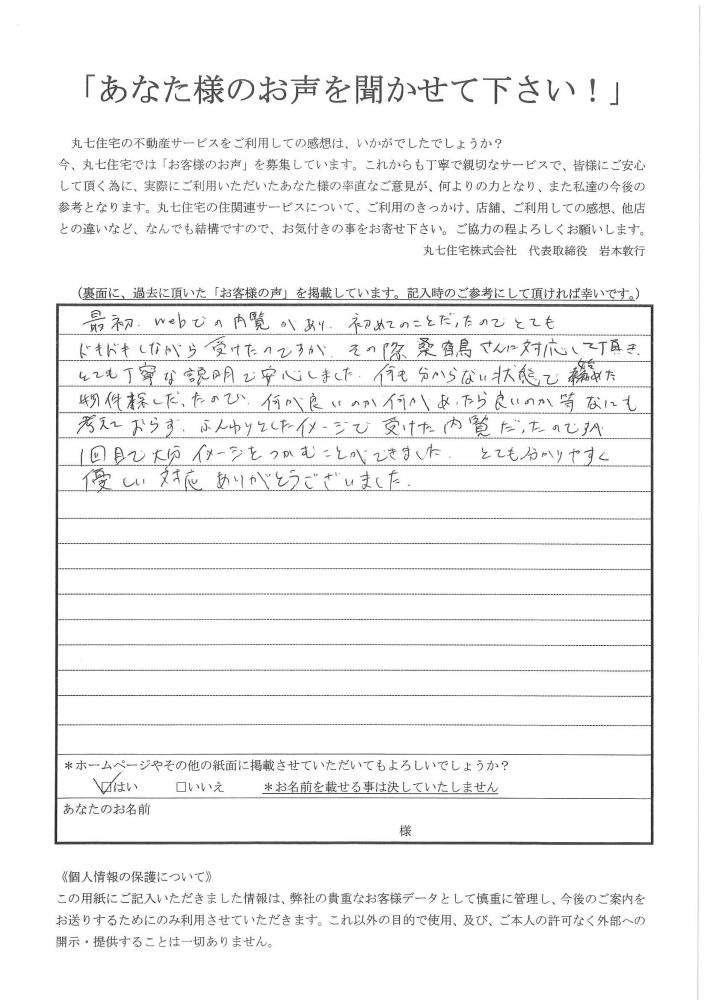 「あなた様のお声を聞かせて下さい！」
丸七住宅の不動産サービスをご利用しての感想は、いかがでしたでしょうか？
今、丸七住宅では「お客様のお声」を募集しています。これからも丁寧で親切なサービスで、皆様にご安心
して頂く為に、実際にご利用いただいたあなた様の率直なご意見が、何よりの力となり、また私達の今後の
参考となります。丸七住宅の住関連サービスについて、ご利用のきっかけ、店舗、ご利用しての感想、他店
との違いなど、なんでも結構ですので、お気付きの事をお寄せ下さい。ご協力の程よろしくお願いします。
丸七住宅株式会社　代表取締役　岩本敦行
（裏面に、過去に頂いた「お客様の声」を掲載しています。記入時のご参考にして頂ければ幸いです。）
最初、webでの内覧があり、初めてのことだったのでとても
ドキドキしながら受けたのですが、その際桑鶴さんに対応して頂き、
とても丁寧な説明で安心しました。何も分からない状態で始めた
物件探しだったので、何が良いのか何があったら良いのか等なにも
考えておらず、ふんわりとしたイメージで受けた内覧だったのですが
1回目で大分イメージをつかむことができました。とても分かりやすく
優しい対応ありがとうございました。
＊ホームページやその他の紙面に掲載させていただいてもよろしいでしょうか？
☑はい　□いいえ　＊お名前を載せる事は決していたしません
あなたのお名前
様
《個人情報の保護について》
この用紙にご記入いただきました情報は、弊社の貴重なお客様データとして慎重に管理し、今後のご案内を
お送りするためにのみ利用させていただきます。これ以外の目的で使用、及び、ご本人の許可なく外部への
開示・提供することは一切ありません。